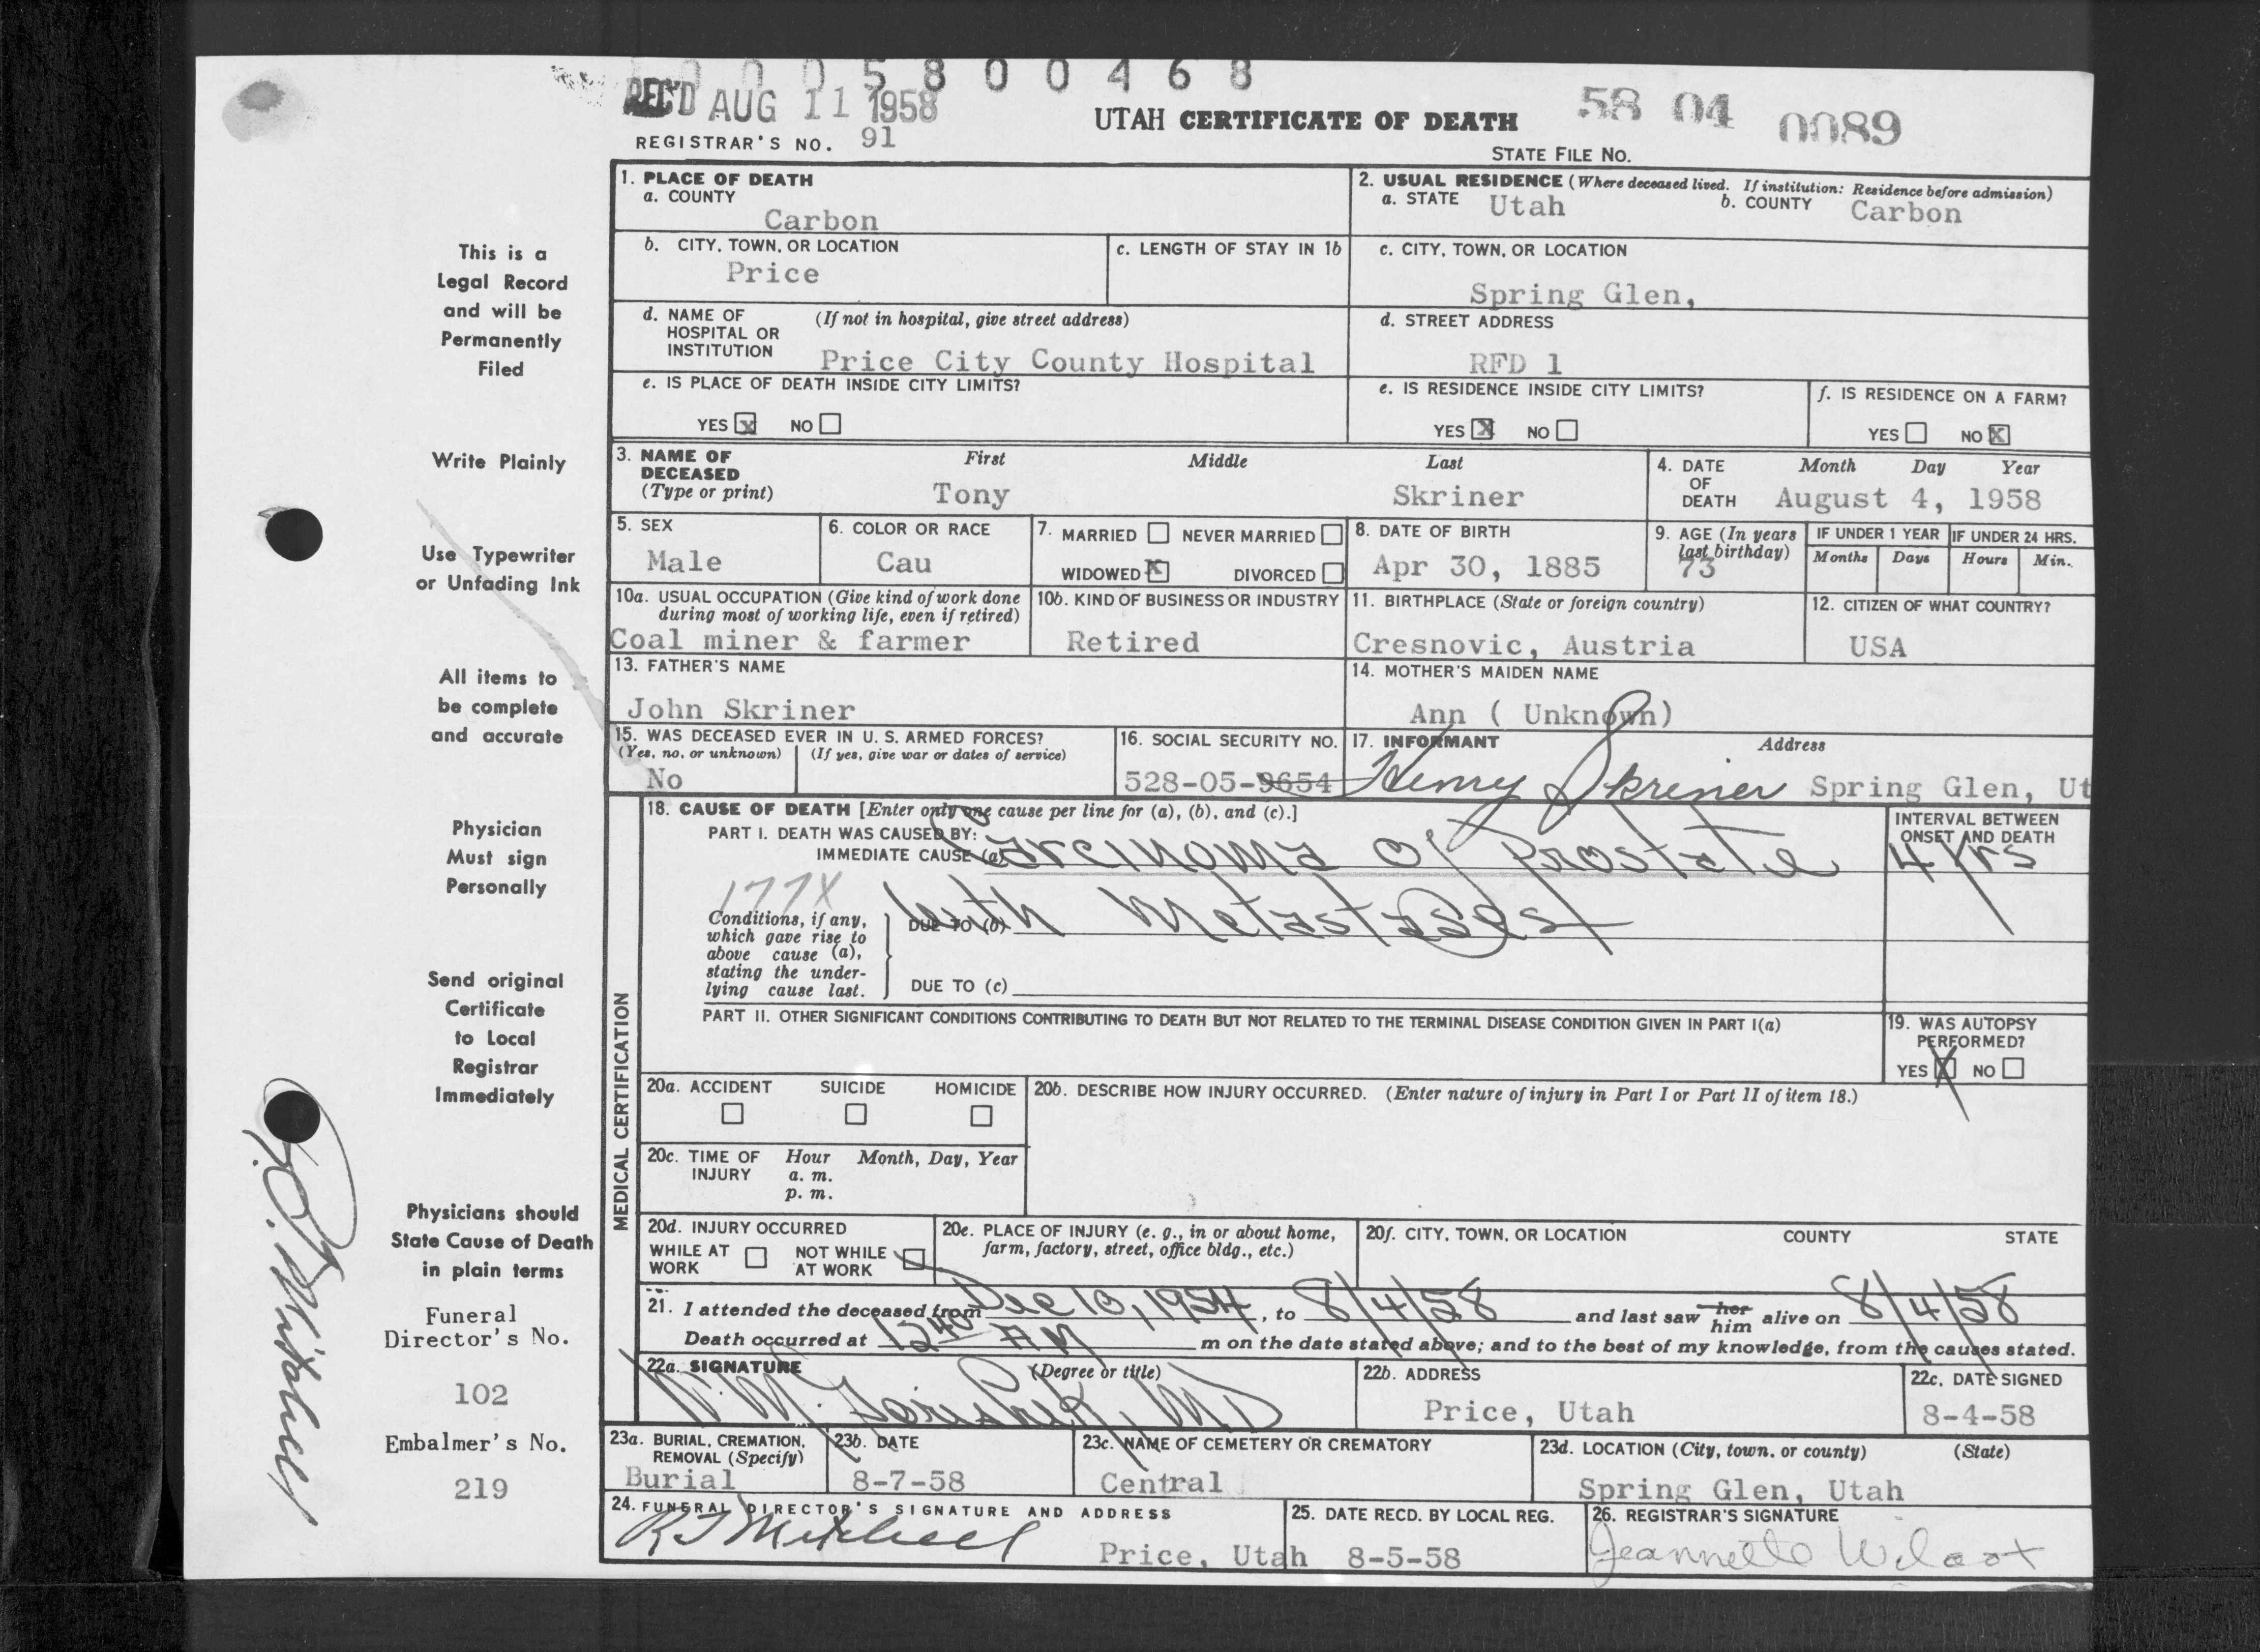 0 0 0 5 8 0 0 4 6 8
REC'D AUG 11 1958
UTAH CERTIFICATE OF DEATH 58 04 0089
REGISTRAR'S NO. 91
STATE FILE NO.
This is a
Legal Record
and will be
Permanently
Filed
Write Plainly
Use Typewriter
or Unfading Ink
All items to
be complete
and accurate
Physician
Must sign
Personally
Send original
Certificate
to Local
Registrar
Immediately
Physicians should
State Cause of Death
in plain terms
Funeral
Director's No.
102
Embalmer's No.
219
1. PLACE OF DEATH
a. COUNTY
Carbon
2. USUAL RESIDENCE (Where deceased lived. If institution: Residence before admission)
a. STATE Utah b. COUNTY Carbon
b. CITY, TOWN, OR LOCATION
Price
c. LENGTH OF STAY IN 1b
c. CITY, TOWN, OR LOCATION
Spring Glen,
d. NAME OF (If not in hospital, give street address)
HOSPITAL OR
INSTITUTION Price City County Hospital
d. STREET ADDRESS
RFD 1
e. IS PLACE OF DEATH INSIDE CITY LIMITS?
YES x NO
e. IS RESIDENCE INSIDE CITY LIMITS?
YES X NO
f. IS RESIDENCE ON A FARM?
YES NO X
3. NAME OF First Middle Last
DECEASED
(Type or print) Tony Skriner
4. DATE Month Day Year
OF
DEATH August 4, 1958
5. SEX
Male
6. COLOR OR RACE
Cau
7. MARRIED NEVER MARRIED
WIDOWED X DIVORCED
8. DATE OF BIRTH
Apr 30, 1885
9. AGE (In years
last birthday)
73
IF UNDER 1 YEAR IF UNDER 24 HRS.
Months Days Hours Min.
10a. USUAL OCCUPATION (Give kind of work done
during most of working life, even if retired)
Coal miner & farmer
10b. KIND OF BUSINESS OR INDUSTRY
Retired
11. BIRTHPLACE (State or foreign country)
Cresnovic, Austria
12. CITIZEN OF WHAT COUNTRY?
USA
13. FATHER'S NAME
John Skriner
14. MOTHER'S MAIDEN NAME
Ann ( Unknown)
15. WAS DECEASED EVER IN U. S. ARMED FORCES?
(Yes, no, or unknown) (If yes, give war or dates of service)
No
16. SOCIAL SECURITY NO.
528-05-9654
17. INFORMANT Address
Henry Skriner Spring Glen, Ut
MEDICAL CERTIFICATION
18. CAUSE OF DEATH [Enter only one cause per line for (a), (b), and (c).]
PART I. DEATH WAS CAUSED BY:
IMMEDIATE CAUSE (a) Carcinoma of Prostate
INTERVAL BETWEEN
ONSET AND DEATH
4 yrs
177X
Conditions, if any,
which gave rise to
above cause (a),
stating the under-
lying cause last.
DUE TO (b) with Metastases
DUE TO (c)
PART II. OTHER SIGNIFICANT CONDITIONS CONTRIBUTING TO DEATH BUT NOT RELATED TO THE TERMINAL DISEASE CONDITION GIVEN IN PART I(a)
19. WAS AUTOPSY
PERFORMED?
YES X NO
20a. ACCIDENT SUICIDE HOMICIDE
20b. DESCRIBE HOW INJURY OCCURRED. (Enter nature of injury in Part I or Part II of item 18.)
20c. TIME OF Hour Month, Day, Year
INJURY a. m.
p. m.
20d. INJURY OCCURRED
WHILE AT NOT WHILE
WORK AT WORK
20e. PLACE OF INJURY (e. g., in or about home,
farm, factory, street, office bldg., etc.)
20f. CITY, TOWN, OR LOCATION COUNTY STATE
21. I attended the deceased from Dec 10, 1954, to 8/4/58 and last saw her him alive on 8/4/58
Death occurred at 12 40 AM m on the date stated above; and to the best of my knowledge, from the causes stated.
22a. SIGNATURE (Degree or title)
MD
22b. ADDRESS
Price, Utah
22c. DATE SIGNED
8-4-58
23a. BURIAL, CREMATION,
REMOVAL (Specify)
Burial
23b. DATE
8-7-58
23c. NAME OF CEMETERY OR CREMATORY
Central
23d. LOCATION (City, town, or county) (State)
Spring Glen, Utah
24. FUNERAL DIRECTOR'S SIGNATURE AND ADDRESS
R J Mitchell
Price, Utah
25. DATE RECD. BY LOCAL REG.
8-5-58
26. REGISTRAR'S SIGNATURE
Jeannette Wilcox